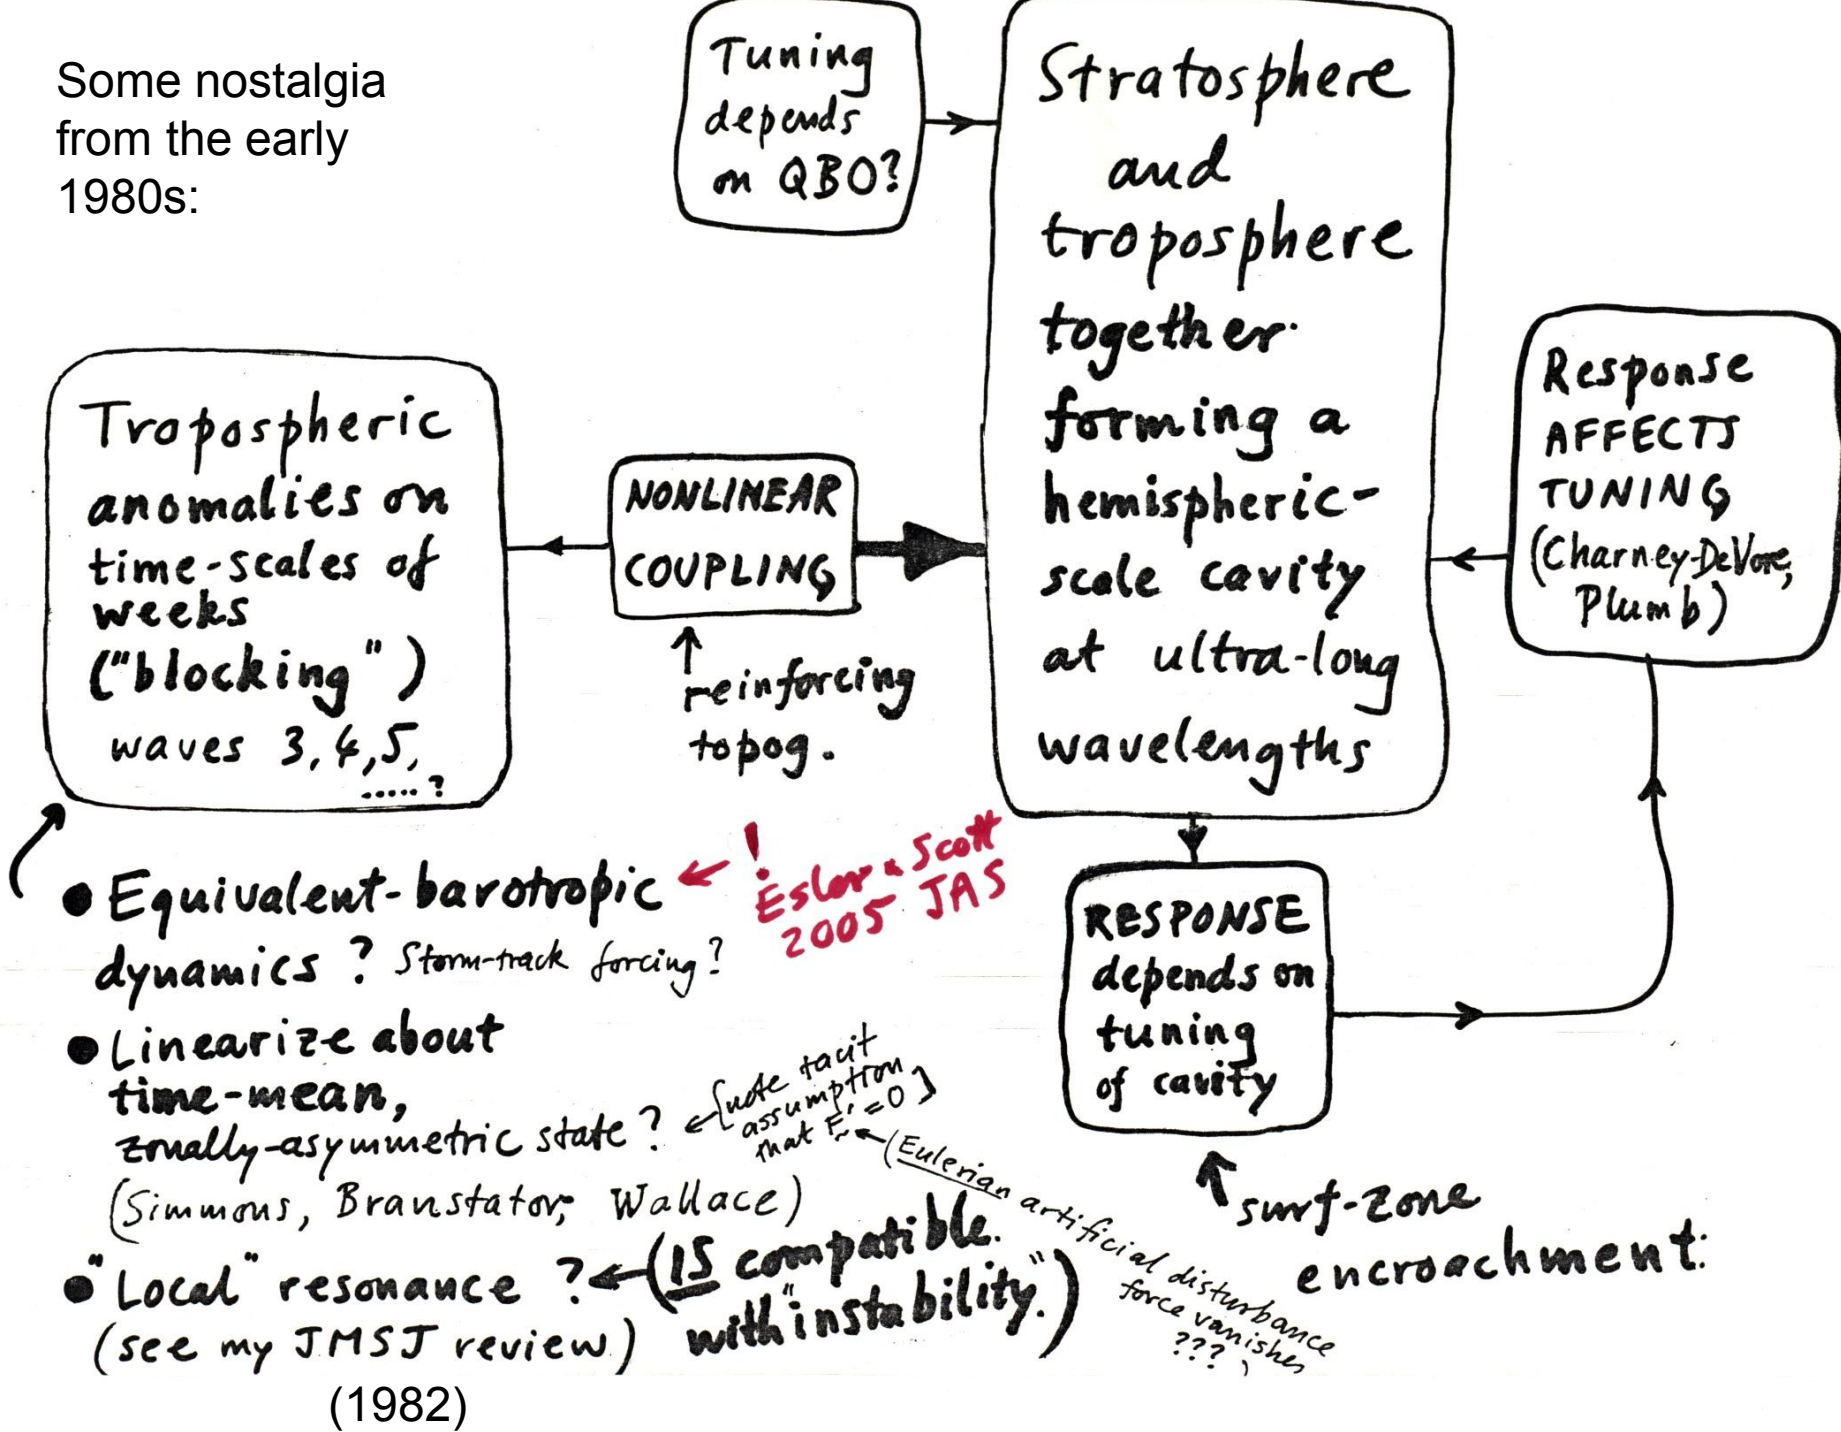 Some nostalgia
from the early
1980s:
Tuning
depends
on QBO?
Stratosphere
and
troposphere
together
forming a
hemispheric-
scale cavity
at ultra-long
wavelengths
Response
AFFECTS
TUNING
(Charney-DeVore,
Plumb)
Tropospheric
anomalies on
time-scales of
weeks
("blocking")
waves 3,4,5,
.....?
NONLINEAR
COUPLING
↑
reinforcing
topog.
RESPONSE
depends on
tuning
of cavity
surf-zone
encroachment.
• Equivalent-barotropic ← !
Esler & Scott
2005 JAS
dynamics? Storm-track forcing?
• Linearize about
time-mean,
zonally-asymmetric state? ← [note tacit
assumption
that F' = 0]
← (Eulerian artificial disturbance
force vanishes
???)
(Simmons, Branstator, Wallace)
• "Local" resonance? ← (IS compatible
with "instability.")
(see my JMSJ review)
(1982)